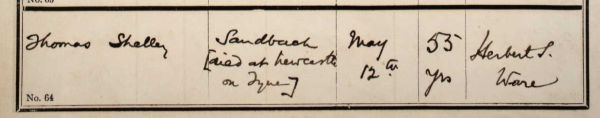 Thomas Shelley
No. 64
Sandbach
[died at Newcastle
on Tyne]
May
12th
55
yrs
Herbert S.
Ware